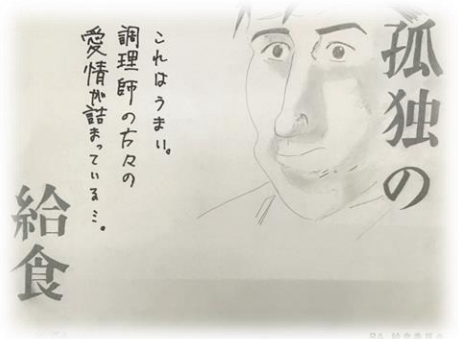 孤独の
これはうまい。
調理師の方々の
愛情が詰まっている…。
給食